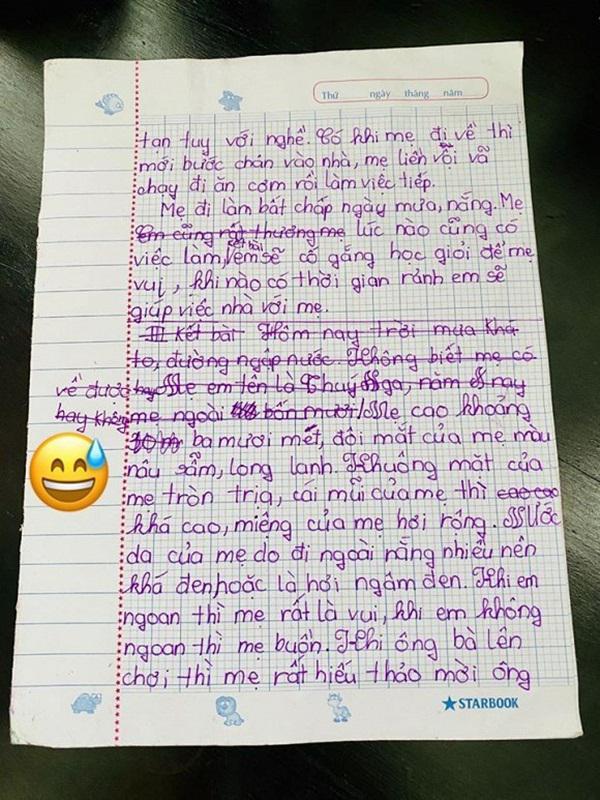 Thứ ngày tháng năm
tạn tuy với nghề. Có khi mẹ đi về thì
mới bước chân vào nhà, mẹ liền vội vã
chạy đi ăn cơm rồi làm việc tiếp.
Mẹ đi làm bất chấp ngày mưa, nắng. Mẹ
Em cũng rất thương mẹ lúc nào cũng có
việc làm, em sẽ cố gắng học giỏi để mẹ
vui, khi nào có thời gian rảnh em sẽ
giúp việc nhà với mẹ.
III Kết bài Hôm nay trời mưa khá
to, đường ngập nước. Không biết mẹ có
về được hay Mẹ em tên là Thuy Nga, năm nay
hay không mẹ ngoài bốn mươi Mẹ cao khoảng
ba mươi mét, đôi mắt của mẹ màu
nâu sẫm, long lanh. Khuông mặt của
mẹ tròn trịa, cái mũi của mẹ thì cao cao
khá cao, miệng của mẹ hơi rộng. Nước
da của mẹ do đi ngoài nắng nhiều nên
khá đen hoặc là hơi ngâm đen. Khi em
ngoan thì mẹ rất là vui, khi em không
ngoan thì mẹ buồn. Khi ông bà lên
chơi thì mẹ rất hiếu thảo mời ông
STARBOOK